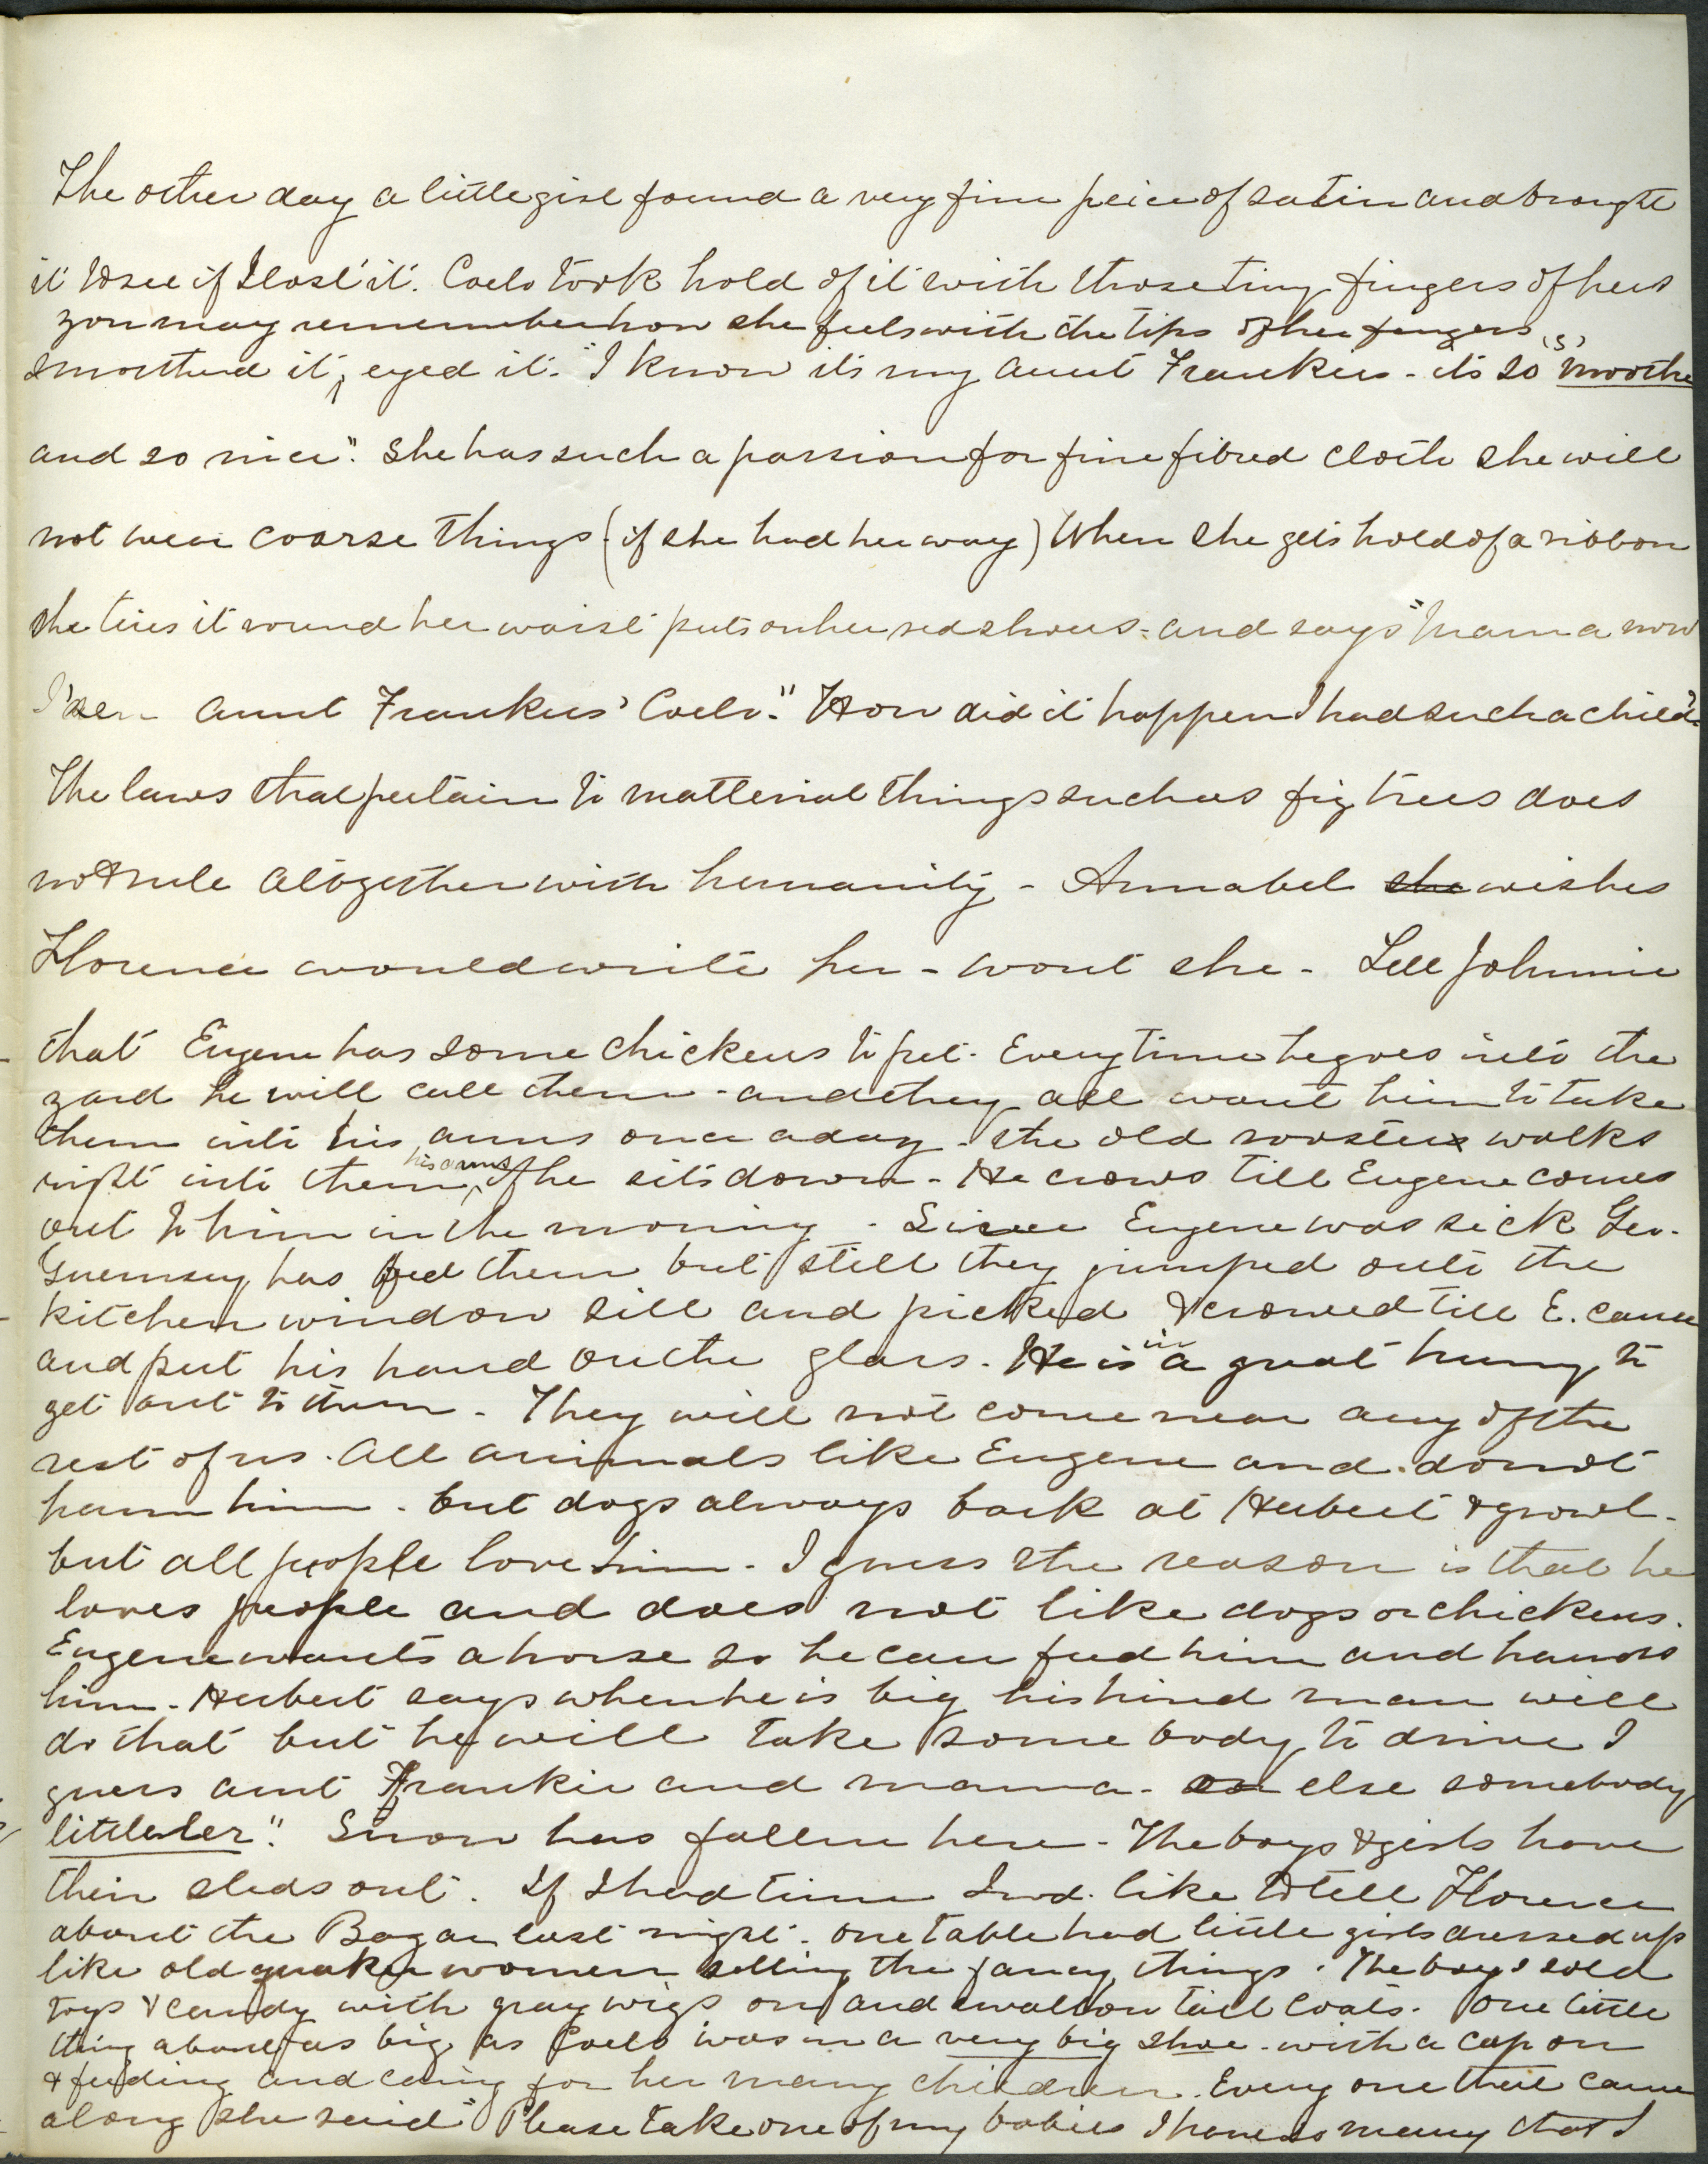 The other day a little girl found a very fine peice of satin and brought
it to see if I lost it. Coelo took hold of it with those tiny fingers of hers
you may remember how she feels with the tips of her fingers
smoothed it, eyed it. "I know its my aunt Frankies - its so 's' moothe
and so nice". She has such a passion for fine fibred cloth she will
not wear coarse things (if she had her way) When she gets hold of a ribbon
she ties it round her waist puts on her red shoes - and says "Mama now
I'm aunt Frankies' Coelo." How did it happen I had such a child?
The laws that pertain to matterial things such as fig trees does
not rule altogether with humanity - Annabel she wishes
Florence would write her - wont she - Tell Johnnie
that Eugene has some chickens to pet. Every time he goes into the
yard he will call them - and they all want him to take
them into his arms once a day - the old rooster walks
right into them his arms if he sits down - He crows till Eugene comes
out to him in the morning - Since Eugene was sick Geo.
Guernsey has fed them but still they jumped onto the
kitchen window sill and picked & crowed till E. came
and put his hand on the glass. He is in a great hurry to
get out to them - They will not come near any of the
rest of us. All animals like Eugene and do not
harm him. but dogs always bark at Herbert & growl -
but all people love him - I guess the reason is that he
loves people and does not like dogs or chickens.
Eugene wants a horse so he can feed him and harness
him - Herbert says when he is big his hired man will
do that but he will take some body to drive I
guess aunt Frankie and mama - or else somebody
littleler". Snow has fallen here - The boys & girls have
their sleds out. If I had time I wd. like to tell Florence
about the Bazar last night. One table had little girls dressed up
like old quaker women selling the fancy things. The boys sold
toys & candy with gray wigs on and swallow tail coats. One little
thing about as big as Coelo was in a very big shoe - with a cap on
& feeding and caring for her many children. Every one that came
along she said "Please take one of my babies I have so many that I